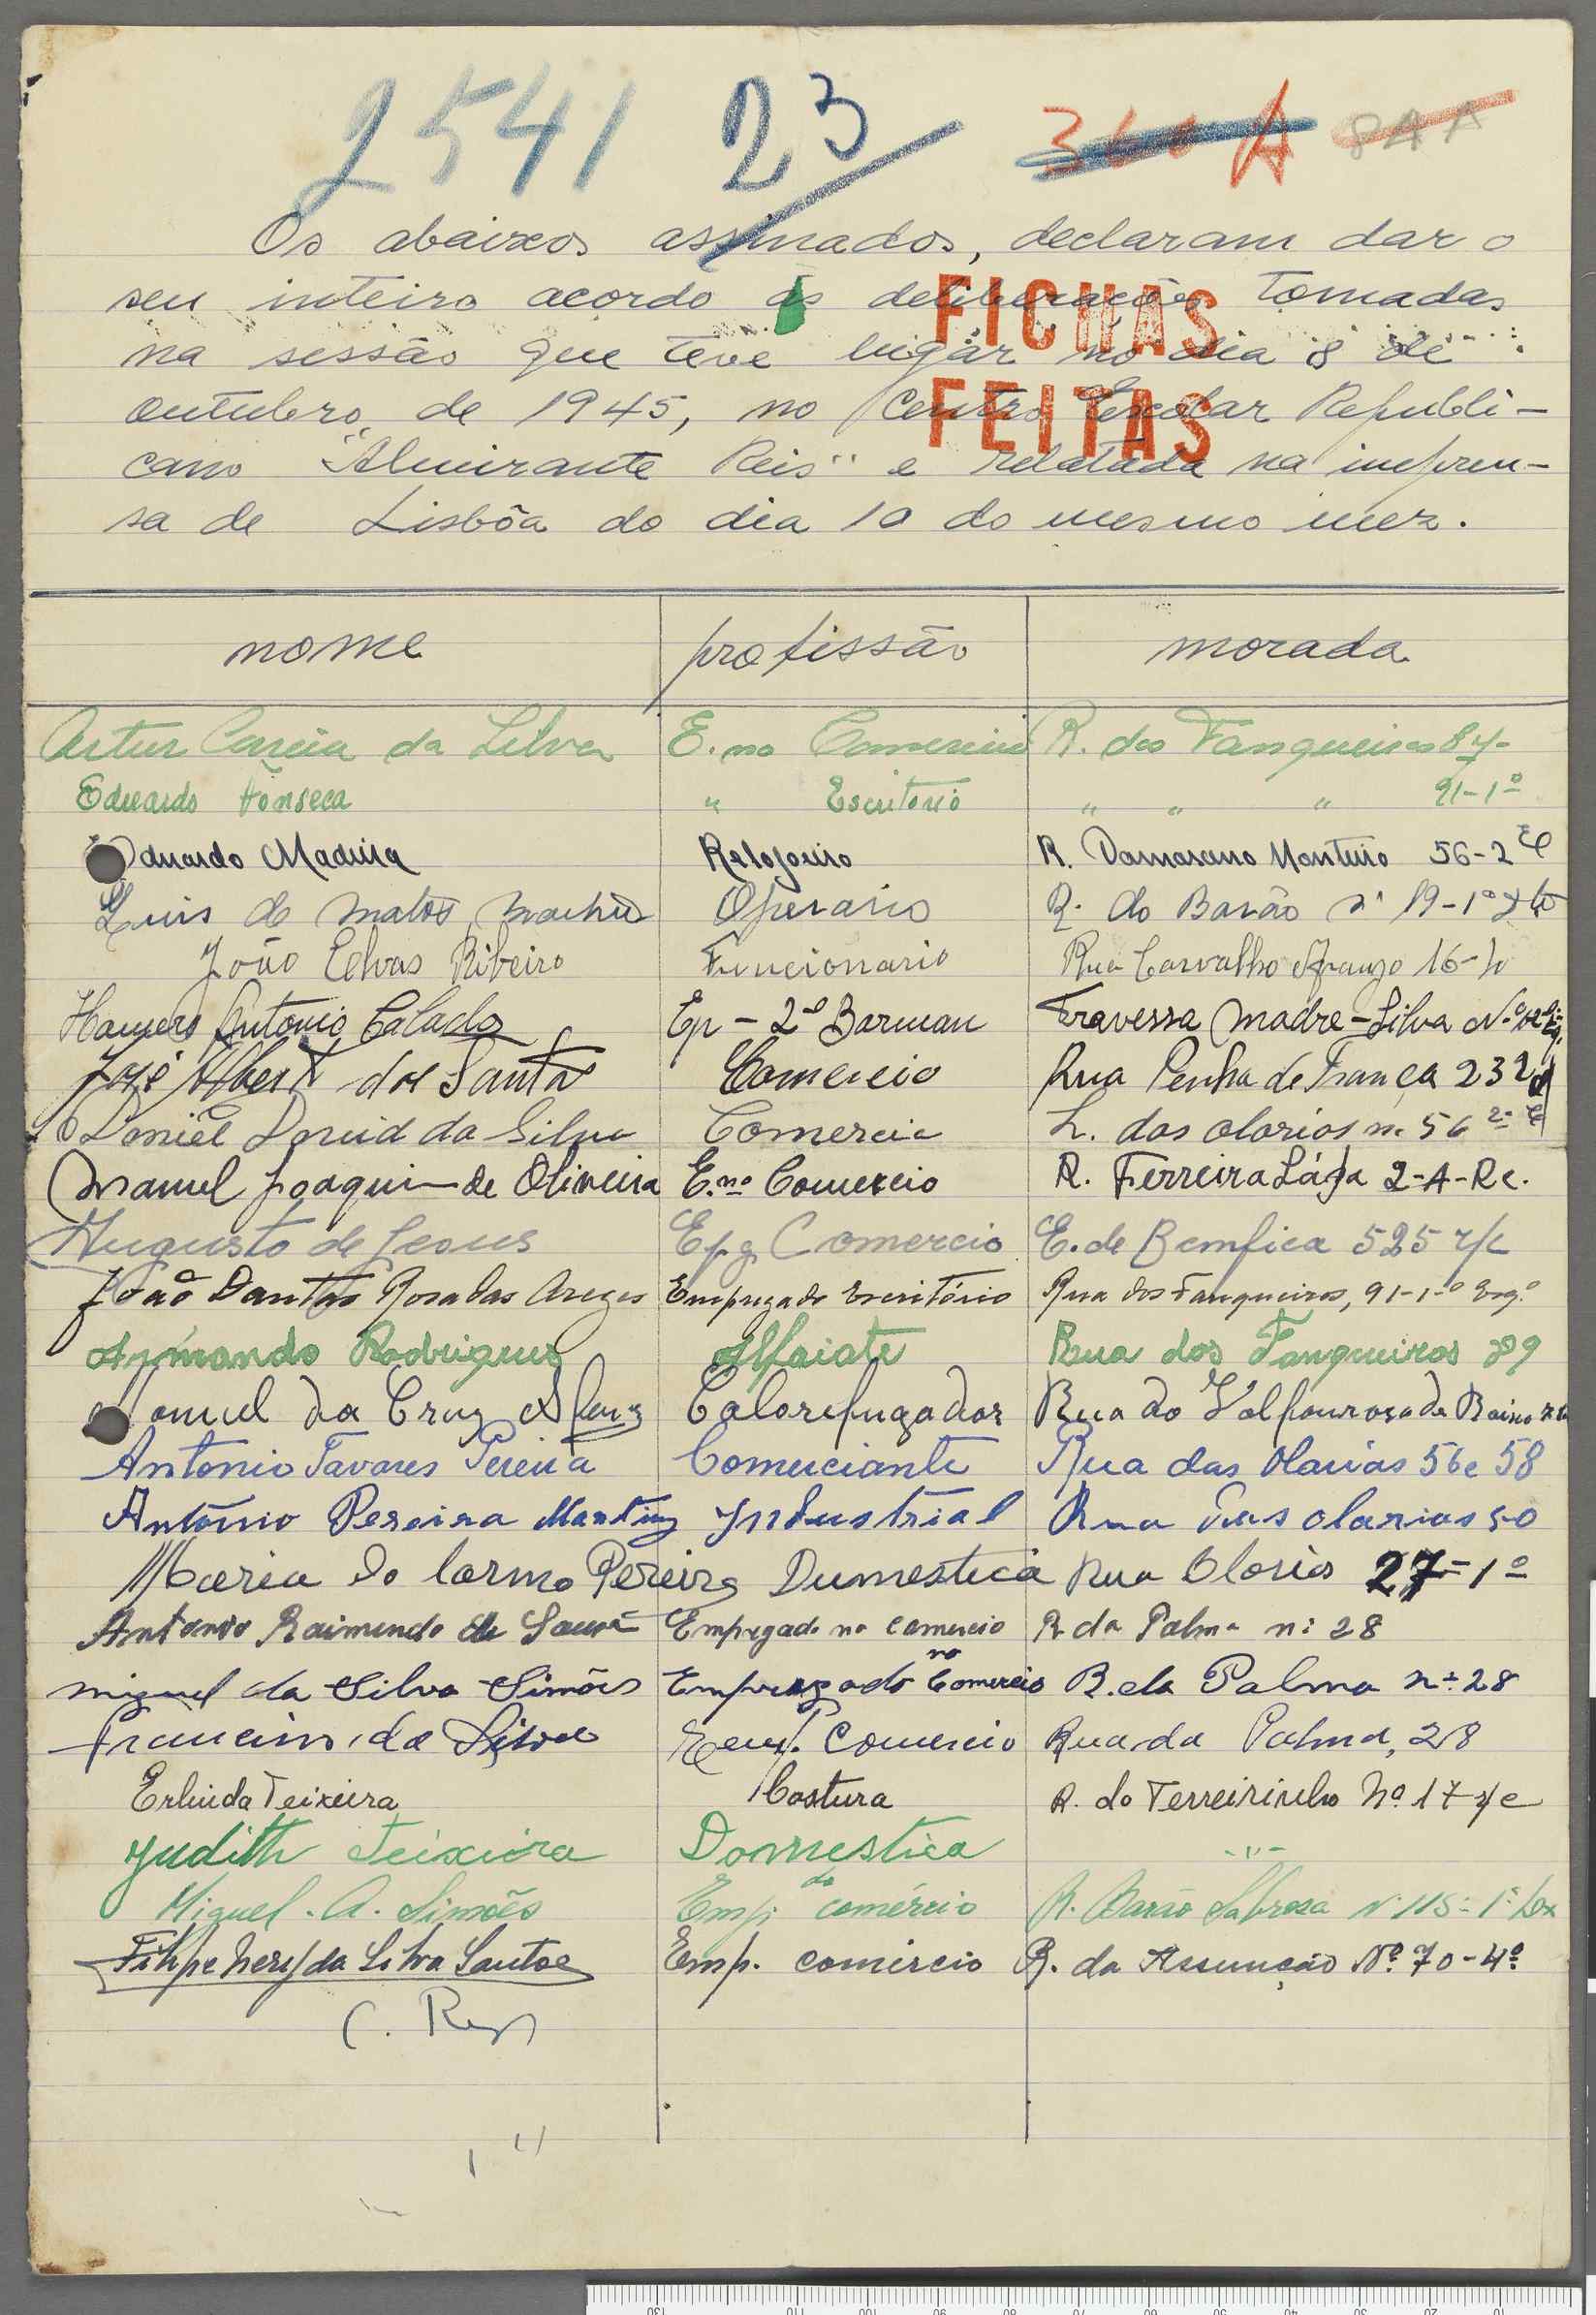 2541 23 360 A 8AA
Os abaixos assinados, declaram dar o
seu inteiro acordo ás deliberações tomadas
FICHAS
na sessão que teve lugar no dia 8 de
outubro de 1945, no Centro Escolar Republi-
FEITAS
cano "Almirante Reis" e relatada na impren-
sa de Lisbôa do dia 10 do mesmo mez.
nome profissão morada
Artur Correia da Silva E. no Comercio R. dos Fanqueiros 87-
Eduardo Fonseca " Escritorio " " " 91-1º
Eduardo Madeira Relojoeiro R. Damasceno Monteiro 56-2º E
Luis de Matos Operario R. do Barão nº 19-1º Dto
João Elvas Ribeiro Funcionario Rua Carvalho Araujo 16-
Homero Antonio Calado Ep - 2º Barman Travessa Madre-Silva Nº
José Albert dos Santos Comercio Rua Penha de França 232
Daniel David da Silva Comercio L. das olarias nº 56 2º E
Manuel Joaquim de Oliveira E. no Comercio R. Ferreira Lápa 2-A-Rc.
Augusto de Jesus Epg Comercio E. de Bemfica 525 r/c
João Dantas Rosa das Empregado Escritório Rua dos Fanqueiros, 91-1º Esq.º
Armando Rodrigues Alfaiate Rua dos Fanqueiros 289
Manuel da Cruz Calorifugador Rua do de Baixo
Antonio Tavares Pereira Comerciante Rua das Olarias 56 e 58
António Pereira Martins Industrial Rua das olarias 50
Maria do Carmo Pereira Dumestica Rua Olarias 27-1º
Antonio Raimundo de Sousa Empregado no comercio R da Palma nº 28
Miguel da Silva Simões Empregado no Comercio R. da Palma nº 28
Francisco da Silva Emp. Comercio Rua da Palma, 28
Erlinda Teixeira Costura R. do Terreirinho Nº 17 r/c
Judith Teixeira Domestica -"-
Miguel. A. Simões Emp. do comércio R. Barão Sabrosa Nº 115-1º
Filipe Nery da Silva Santos Emp. comércio R. da Assunção Nº 70-4º